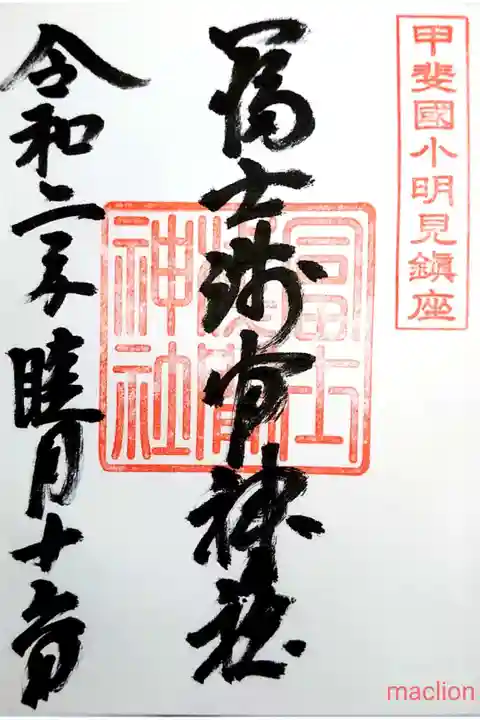 甲斐國小明見鎭座
冨士浅間神社
冨士
神社
令和二年睦月十六日
maclion